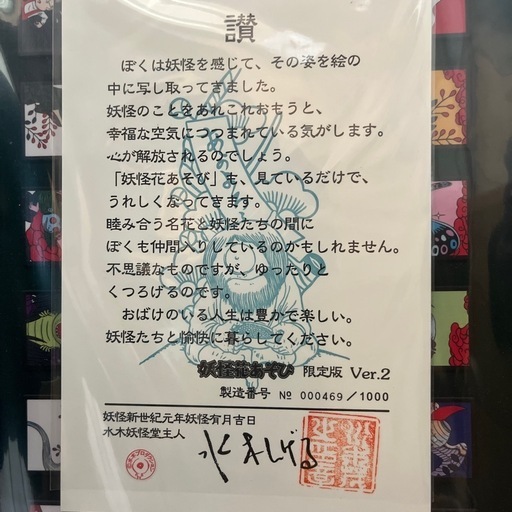 讃
ぼくは妖怪を感じて、その姿を絵の
中に写し取ってきました。
妖怪のことをあれこれおもうと、
幸福な空気につつまれている気がします。
心が解放されるのでしょう。
「妖怪花あそび」も、見ているだけで、
うれしくなってきます。
睦み合う名花と妖怪たちの間に
ぼくも仲間入りしているのかもしれません。
不思議なものですが、ゆったりと
くつろげるのです。
おばけのいる人生は豊かで楽しい。
妖怪たちと愉快に暮らしてください。
妖怪花あそび 限定版 Ver.2
製造番号 № 000469/1000
妖怪新世紀元年妖怪有月吉日
木木妖怪堂主人
水木しげる